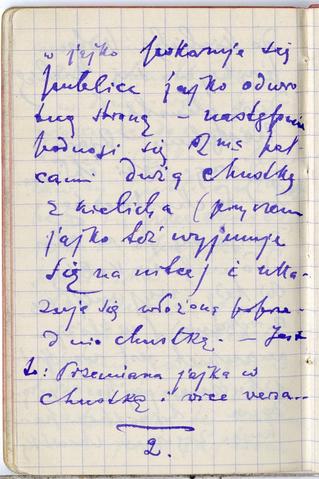 w jajko pokazuje się
publice jajko odwro
tną stroną – następnie
podnosi się 2ma pal
cami dużą chustkę
z kielicha (przyczem
jajko też wyjmuje
się na nitce) i uka
zuje się włożoną poprze
dnio chustkę. – Jest
to: Przemiana jajka w
chustkę i vice versa..
2.